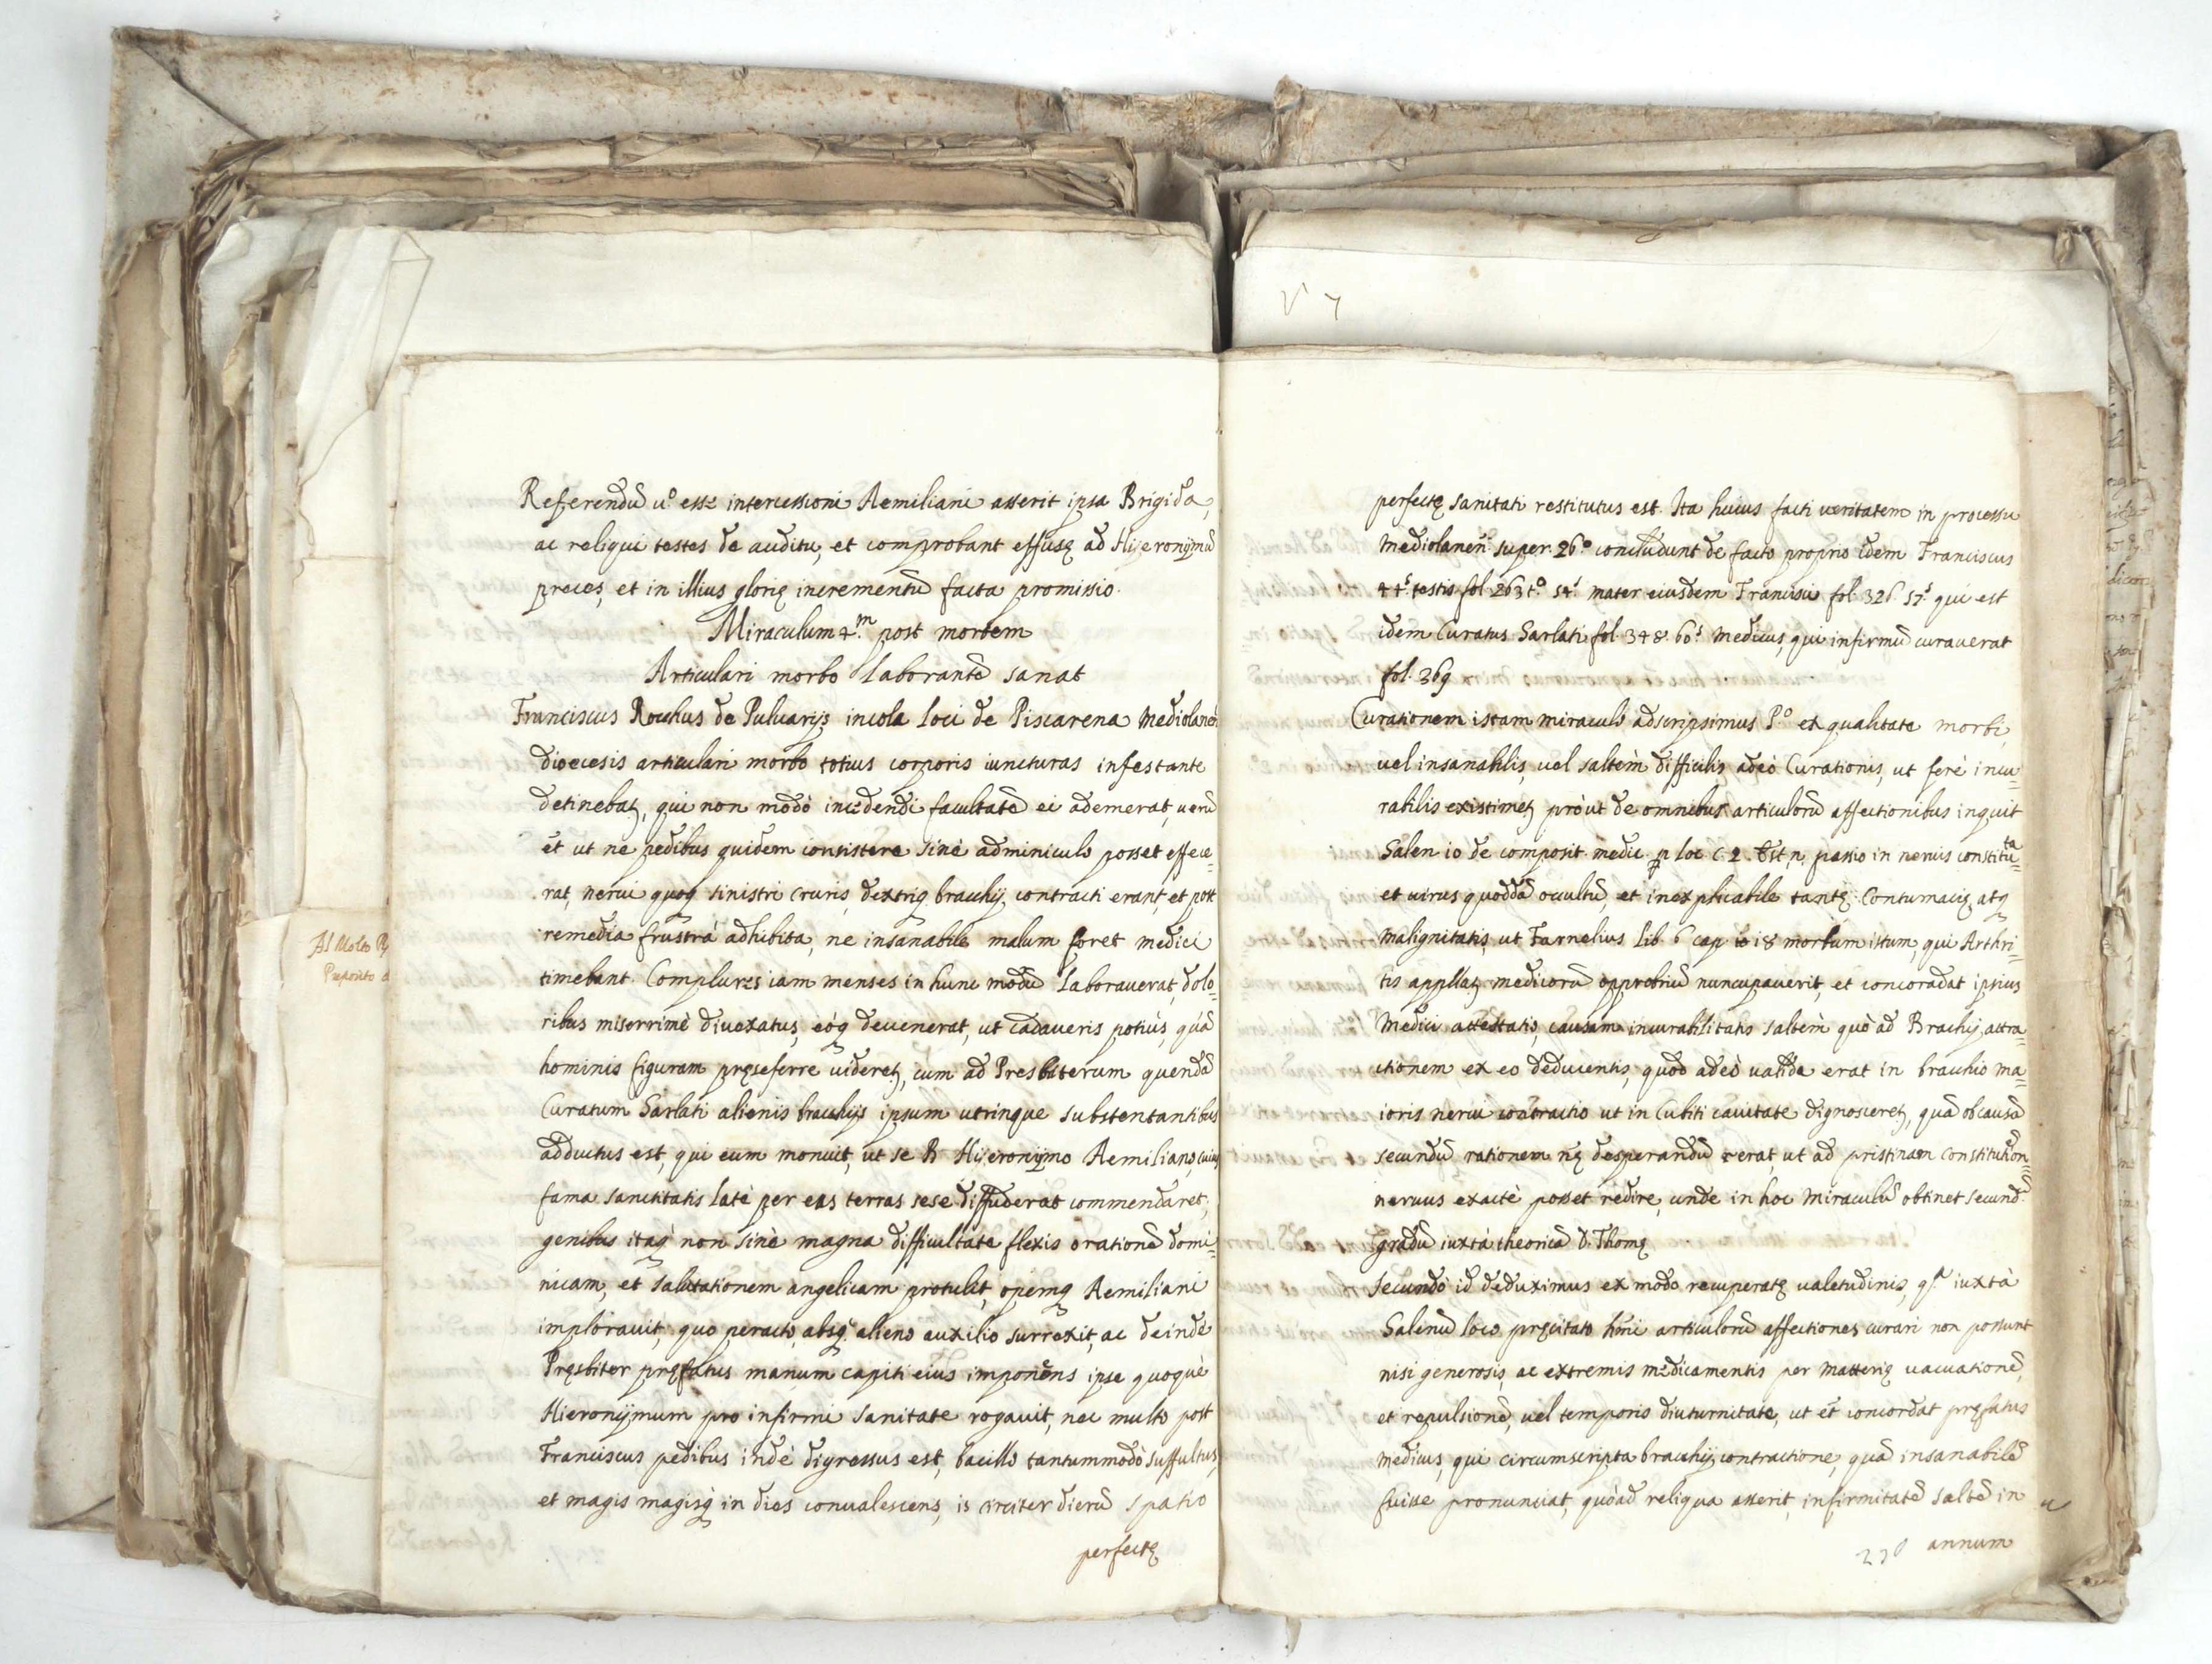 Referendũ u.º esse intercessioni Aemiliani asserit ipsa Brigida,
ac reliqui testes de auditu, et comprobant effusę ad Hijeronÿmũ
preces, et in illius glorię incrementũ facta promissio.
Miraculum 4.m post mortem
Articulari morbo laborantẽ sanat
Franciscus Rocchus de Puluarijs incola loci de Piscarena Mediolanen̄
dioecesis articulari morbo totius corporis iuncturas infestante
detinebatꝫ, qui non modò incedendi facultatẽ ei ademerat, uerũ
ẽt ut ne pedibus quidem consistere sinè adminiculo posset effece=
rat, nerui quoqꝫ sinistri cruris, dextriqꝫ bracchij contracti erant, et post
remedia frustrà adhibita, ne insanabile malum foret medici
timebant. Complures iam menses in hunc modũ laborauerat, dolo=
ribus miserrimè diuexatus, eóqꝫ deuenerat, ut cadaueris potiùs, quã
hominis figuram pręseferre uideretꝫ, cum ad Presbiterum quendã
Curatum Sarlati alienis bracchijs ipsum utrinque substentantibus
adductus est, qui eum monuit, ut se B. Hijeronÿmo Aemiliano, cuius
fama sanctitatis latè per eas terras sese diffuderat commendaret;
genibus itaqꝫ non sinè magna difficultate flexis orationẽ domi=
nicam, et salutationem angelicam protulit, opemqꝫ Aemiliani
implorauit; quo peracto, absqꝫ alieno auxilio surrexit, ac deindè
Pręsbiter pręfatus manum capiti eius imponens ipse quoquè
Hieronÿmum pro infirmi sanitate rogauit, nec multo post
Franciscus pedibus indè digressus est, bacillo tantummodò suffultus,
et magis magisqꝫ in dies conualescens, is circiter dierũ spatio
perfectę
Al Molto R
Preposito d
V 7
perfectę sanitati restitutus est. Ita huius facti ueritatem in processu
Mediolanen̄ super 26.º concludunt de facto proprio idem Franciscus
44.s testis fol. 263 t.º 54.s mater eiusdem Francisci fol. 326. 57.s qui est
idem Curatus Sarlati fol. 348. 60.s Medicus, qui infirmũ curauerat
fol. 369
Curationem istam miraculo adscripsimus P.º et qualitate morbi,
uel insanabilis, uel saltèm difficilis adeò Curationis, ut ferè incu=
rabilis existimetꝫ, pròut de omnibus articulorũ affectionibus inquit
Galen 10 de composit. medic. p loc c. 2. Est n. passio in neruis constituta=
et uirus quoddã ocultũ, et inexplicabile tantę Contumacię, atqꝫ
malignitatis, ut Farnelius lib. 6 cap 18 morbum istum, qui Arthri=
tis appllatꝫ medicorũ opprobriũ nuncupauerit, et concordat ipsius
Medici attestatio, causam incurabilitatis saltèm quò ad Brachij attra=
ctionem ex eo deducentis, quod adeò ualida erat in bracchio ma=
ioris nerui contractio ut in Cubiti cauitate dignosceretꝫ, quã ob causã
secundũ rationem nę desperandũ erat, ut ad pristinam constitution̄=
neruus exactè posset redire, unde in hoc miraculũ obtinet secund.
gradũ iuxtà theoricã D. Thomę
Secundò id deduximus ex modo recuperatę ualetudinis, q.a iuxtà
Galenũ loco pręcitato hm̄i articulorũ affectiones curari non possunt
nisi generosis, ac extremis medicamentis per matterię uacuationẽ,
et repulsionẽ, uel temporis diuturnitate, ut ẽt concordat pręfatus
Medicus, qui circumscripta bracchij contractione, quã insanabilẽ
fuisse pronunciat, quòad reliqua asserit, infirmitatẽ saltẽ in
annum